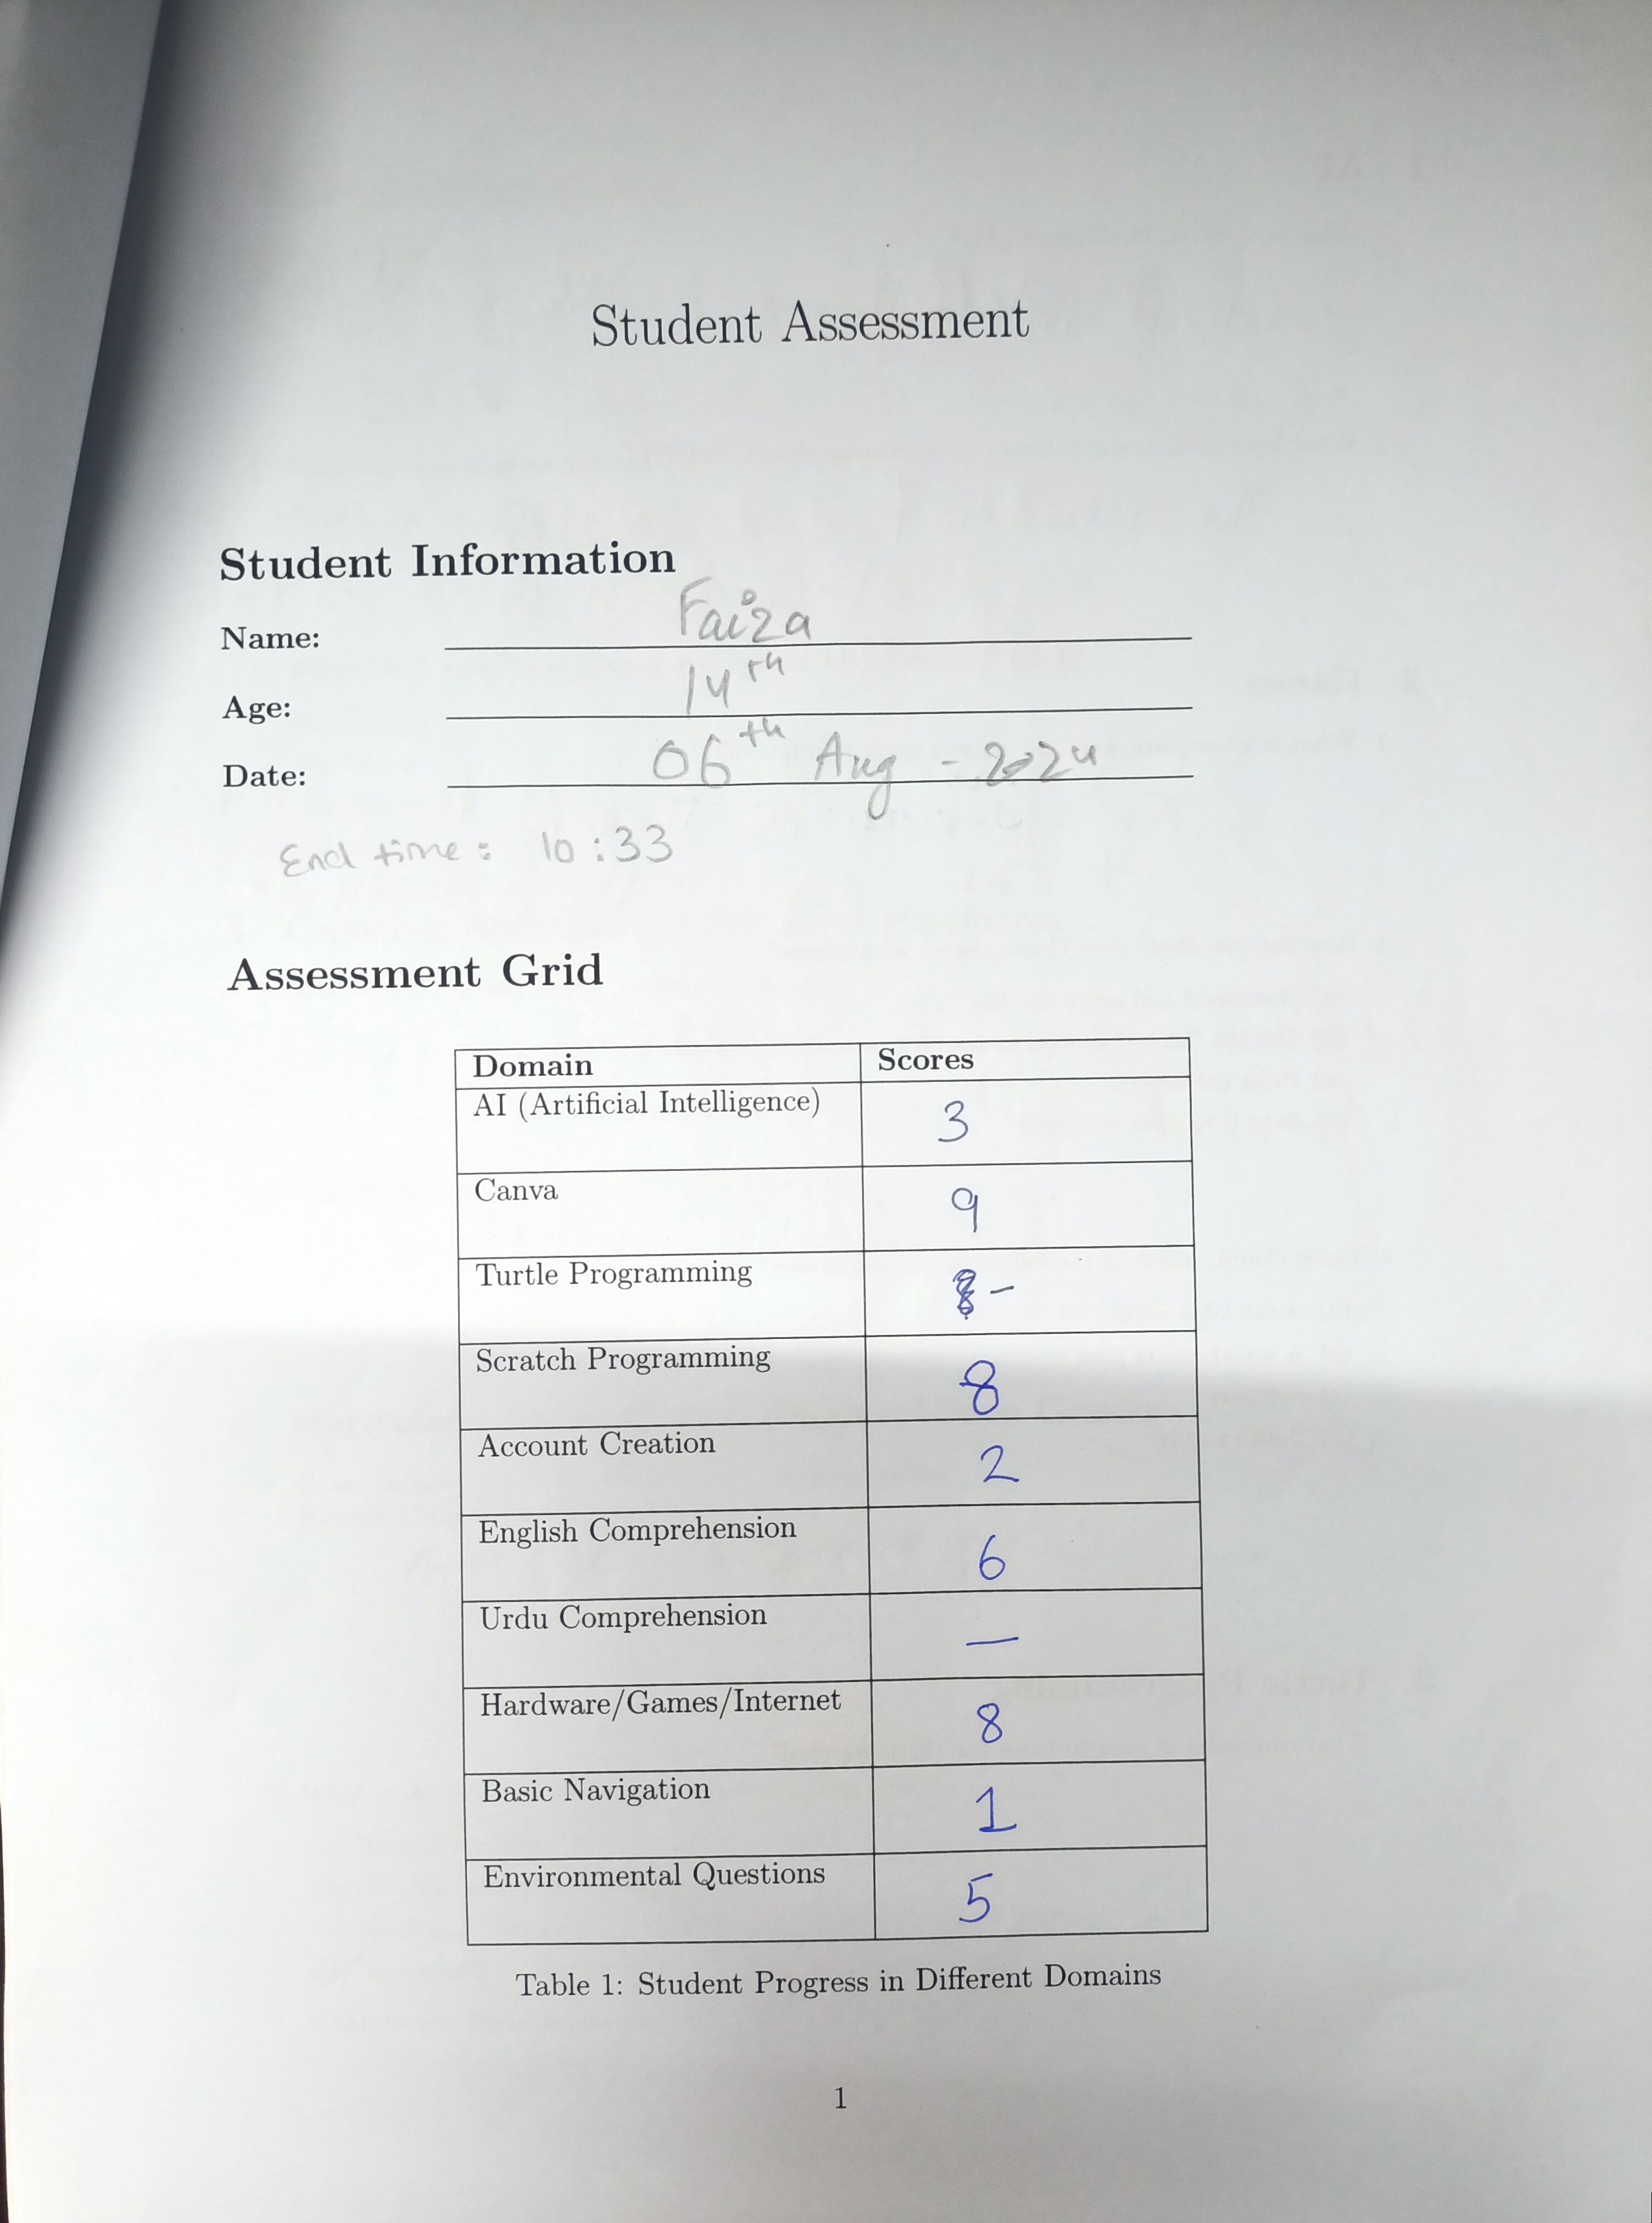 Student Assessment
Student Information
Name: Faiza
Age: 14th
Date: 06th Aug - 2024
End time: 10:33
Assessment Grid
Domain Scores
AI (Artificial Intelligence) 3
Canva 9
Turtle Programming -
Scratch Programming 8
Account Creation 2
English Comprehension 6
Urdu Comprehension —
Hardware/Games/Internet 8
Basic Navigation 1
Environmental Questions 5
Table 1: Student Progress in Different Domains
1